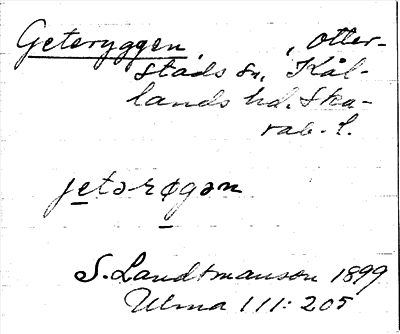 Geteryggen, , Otter-
stads sn, Kål-
lands hd. Ska-
rab. l.
jetərøgən
S. Landtmanson 1899
Ulma 111: 205